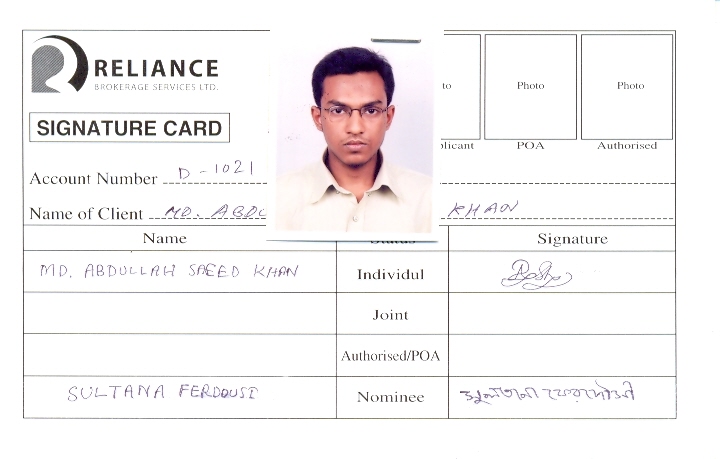 RELIANCE
BROKERAGE SERVICES LTD.
SIGNATURE CARD
Photo Photo
POA Authorised
Account Number D-1021
Name of Client MD. KHAN
Name Signature
MD. ABDULLAH SAEED KHAN Individul
Joint
Authorised/POA
SULTANA FERDOUSI Nominee সুলতানা ফেরদৌসী